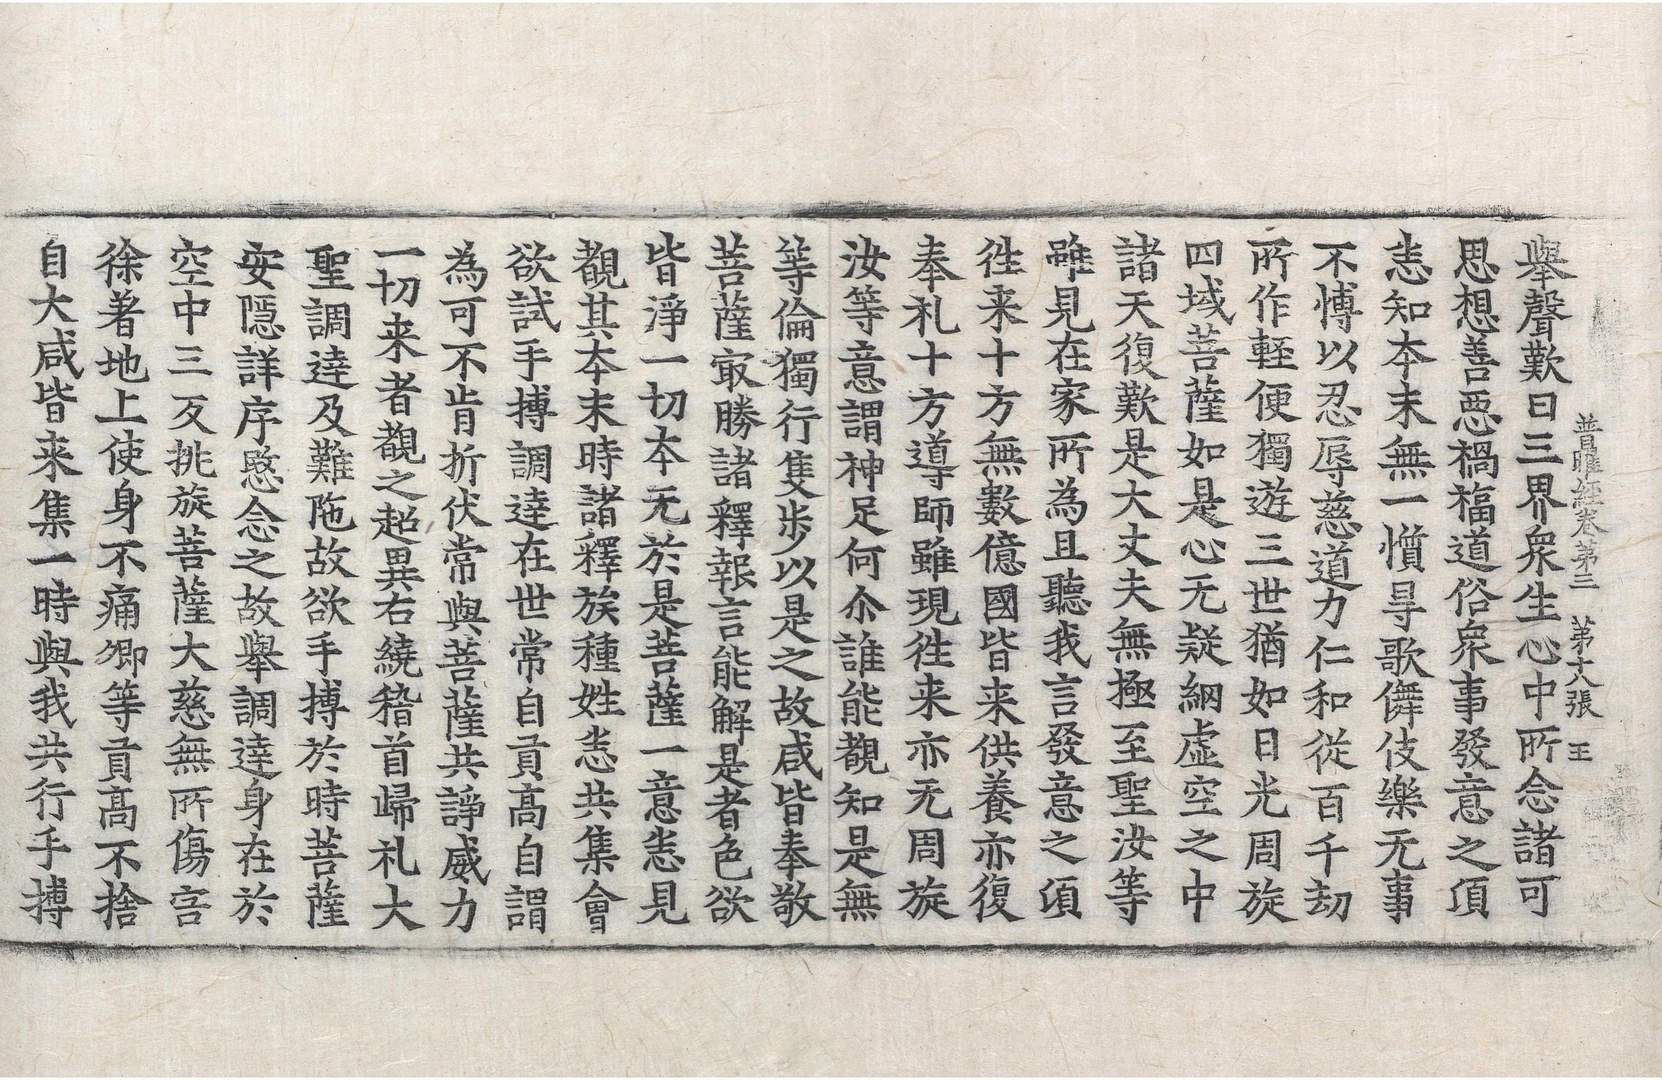 普曜經卷第三　第十六張　王
舉聲歎曰三界衆生心中所念諸可
思想善惡禍福道俗衆事發意之須
悉知本末無一憒㝵歌儛伎樂无事
不博以忍辱慈道力仁和従百千劫
所作輕便獨遊三世猶如日光周旋
四域菩薩如是心无疑網虛空之中
諸天復歎是大丈夫無極至聖汝等
雖見在家所為且聽我言發意之須
往来十方無數億國皆来供養亦復
奉礼十方導師雖現往来亦无周旋
汝等意謂神足何尒誰能覩知是無
等倫獨行隻步以是之故咸皆奉敬
菩薩冣勝諸釋報言能解是者色欲
皆淨一切本无於是菩薩一意悉見
觀其本末時諸釋族種姓悉共集會
欲試手搏調達在世常自貢高自謂
為可不肯折伏常與菩薩共諍威力
一切来者觀之超異右繞稽首歸礼大
聖調達及難陁故欲手搏於時菩薩
安隱詳序愍念之故舉調達身在於
空中三反挑旋菩薩大慈無所傷害
徐著地上使身不痛卿等貢高不捨
自大咸皆来集一時與我共行手搏